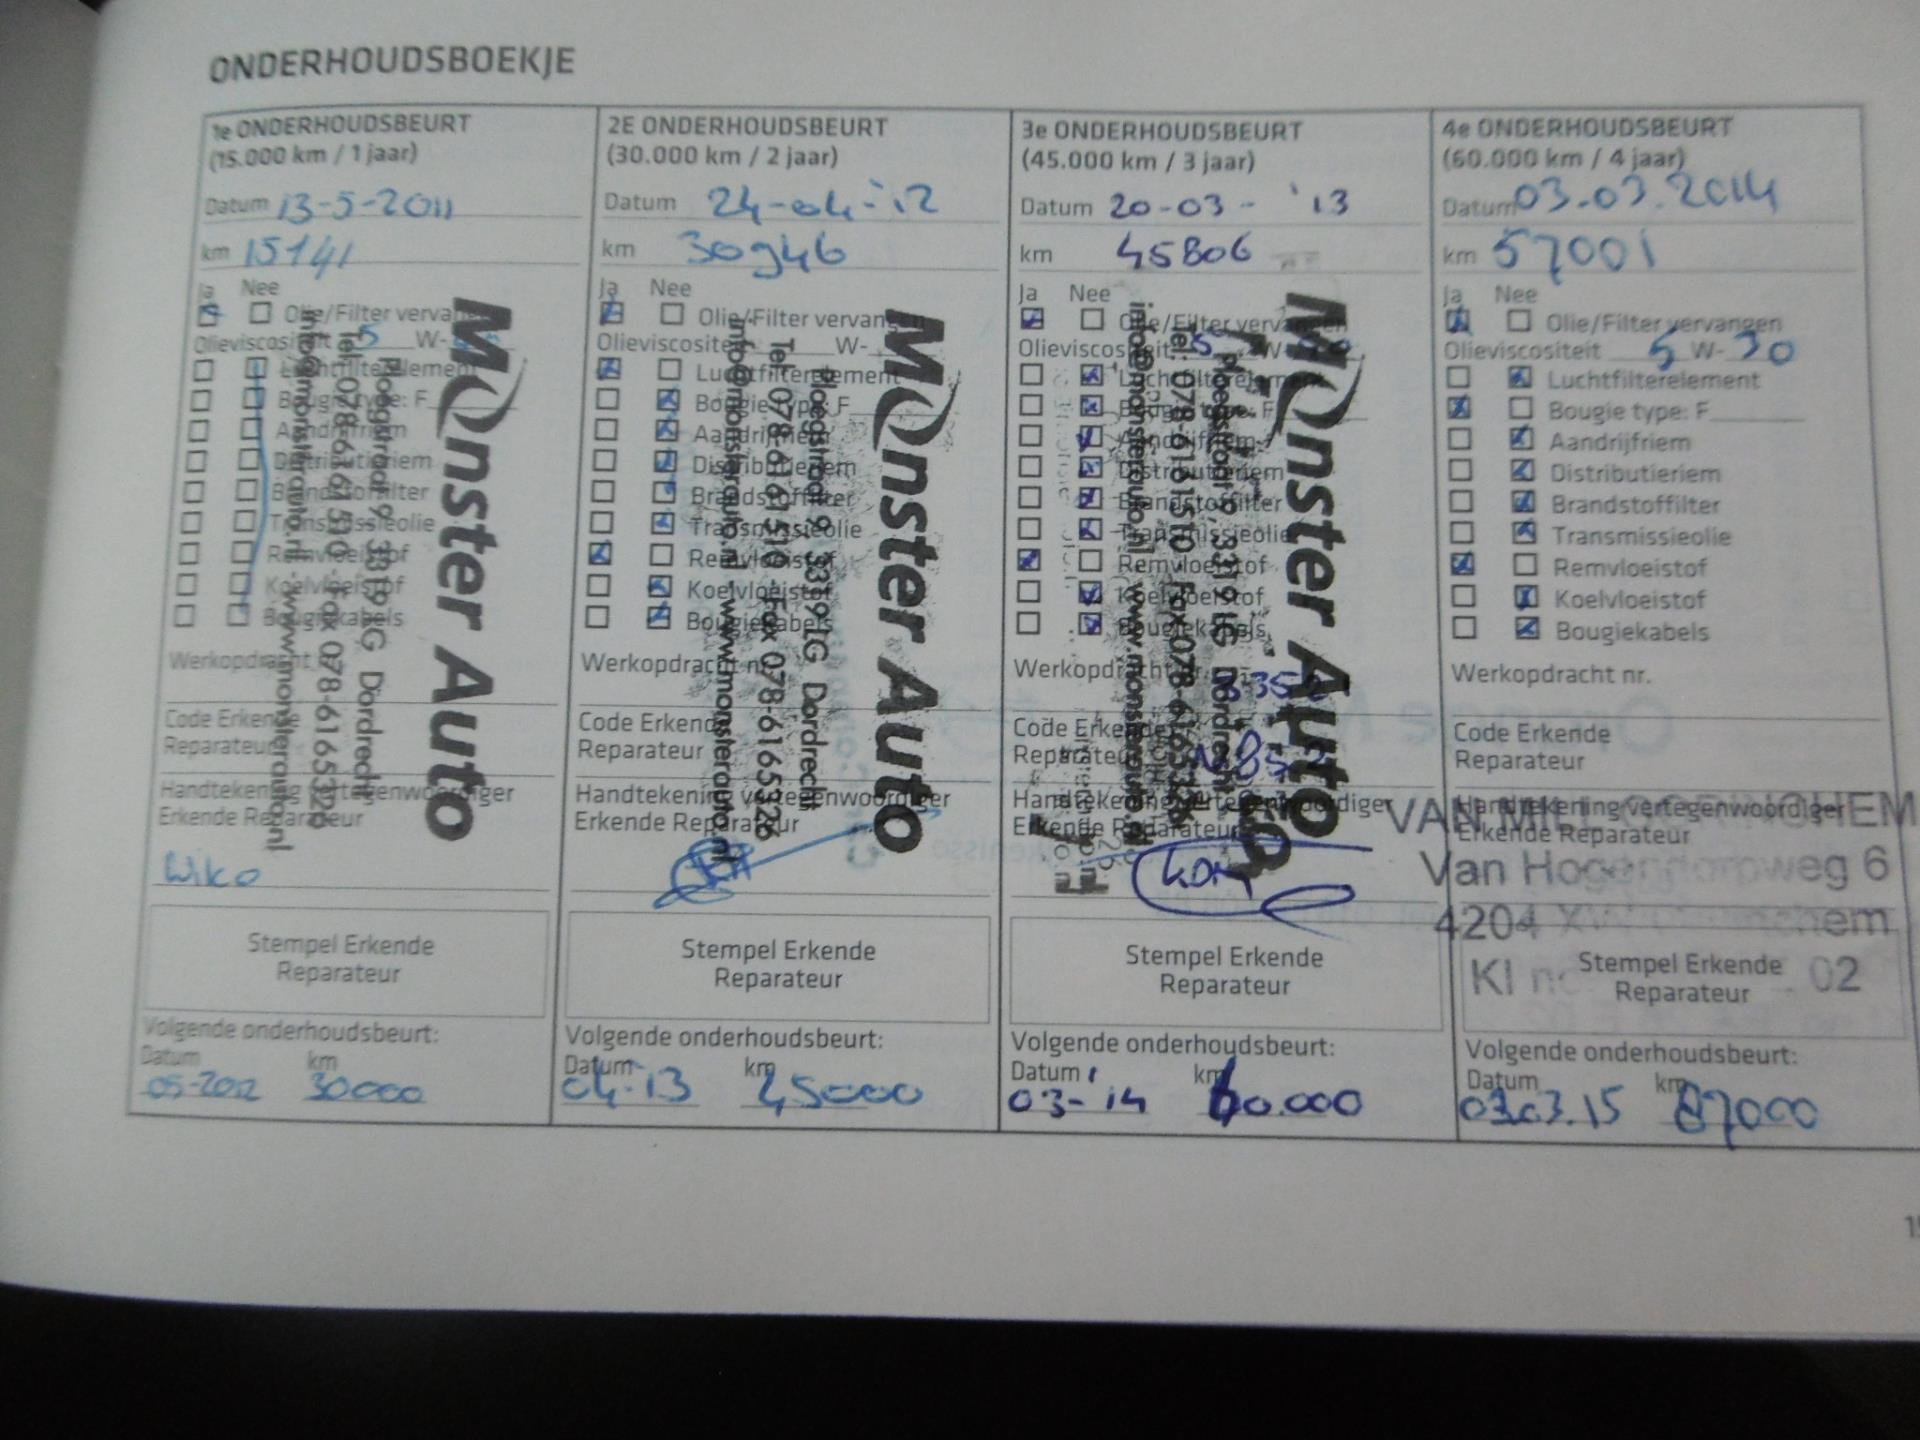 ONDERHOUDSBOEKJE
1e ONDERHOUDSBEURT
(15.000 km / 1 jaar)
Datum 13-5-2011
km 15141
Ja Nee
Olie/Filter vervangen
Olieviscositeit 5 W-
Luchtfilterelement
Bougie type: F
Aandrijfriem
Distributieriem
Brandstoffilter
Transmissieolie
Remvloeistof
Koelvloeistof
Bougiekabels
Werkopdracht nr.
Code Erkende
Reparateur
Handtekening vertegenwoordiger
Erkende Reparateur
Wiko
Stempel Erkende
Reparateur
Volgende onderhoudsbeurt:
Datum km
05-2012 30000
Monster Auto
Ploegstraat 9, 3319 IG Dordrecht
Tel. 078-6161510 Fax 078-6165326
info@monsterauto.nl www.monsterauto.nl
2E ONDERHOUDSBEURT
(30.000 km / 2 jaar)
Datum 24-04-'12
km 30946
Ja Nee
Olie/Filter vervangen
Olieviscositeit W-
Luchtfilterelement
Bougie type: F
Aandrijfriem
Distributieriem
Brandstoffilter
Transmissieolie
Remvloeistof
Koelvloeistof
Bougiekabels
Werkopdracht nr.
Code Erkende
Reparateur
Handtekening vertegenwoordiger
Erkende Reparateur
Stempel Erkende
Reparateur
Volgende onderhoudsbeurt:
Datum km
04-13 45000
Monster Auto
Ploegstraat 9, 3319 IG Dordrecht
Tel. 078-6161510 Fax 078-6165326
info@monsterauto.nl www.monsterauto.nl
3e ONDERHOUDSBEURT
(45.000 km / 3 jaar)
Datum 20-03-'13
km 45806
Ja Nee
Olie/Filter vervangen
Olieviscositeit 5 W-
Luchtfilterelement
Bougie type: F
Aandrijfriem
Distributieriem
Brandstoffilter
Transmissieolie
Remvloeistof
Koelvloeistof
Bougiekabels
Werkopdracht nr.
Code Erkende
Reparateur
Handtekening vertegenwoordiger
Erkende Reparateur
Stempel Erkende
Reparateur
Volgende onderhoudsbeurt:
Datum km
03-'14 60.000
Monster Auto
Ploegstraat 9, 3319 IG Dordrecht
Tel: 078-6161510 Fax 078-6165326
info@monsterauto.nl www.monsterauto.nl
4e ONDERHOUDSBEURT
(60.000 km / 4 jaar)
Datum 03.03.2014
km 57001
Ja Nee
Olie/Filter vervangen
Olieviscositeit 5 W-30
Luchtfilterelement
Bougie type: F
Aandrijfriem
Distributieriem
Brandstoffilter
Transmissieolie
Remvloeistof
Koelvloeistof
Bougiekabels
Werkopdracht nr.
Code Erkende
Reparateur
Handtekening vertegenwoordiger
Erkende Reparateur
VAN MILL GORINCHEM
Van Hogendorpweg 6
4204 XW Gorinchem
KI 02
Stempel Erkende
Reparateur
Volgende onderhoudsbeurt:
Datum km
03.03.15 87000